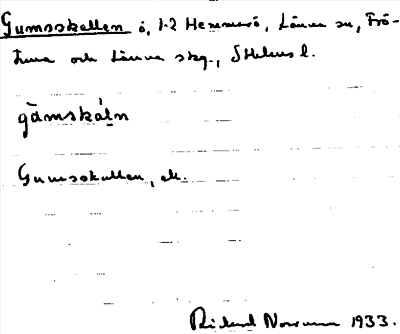 Gumsskallen ö, 1-2 Hemmarö, Länna sn, Frö-
tuna och Länna skg., Sthlms l.
gàmskáln
Gumsskallen, ek.
Rickard Norrman 1933.